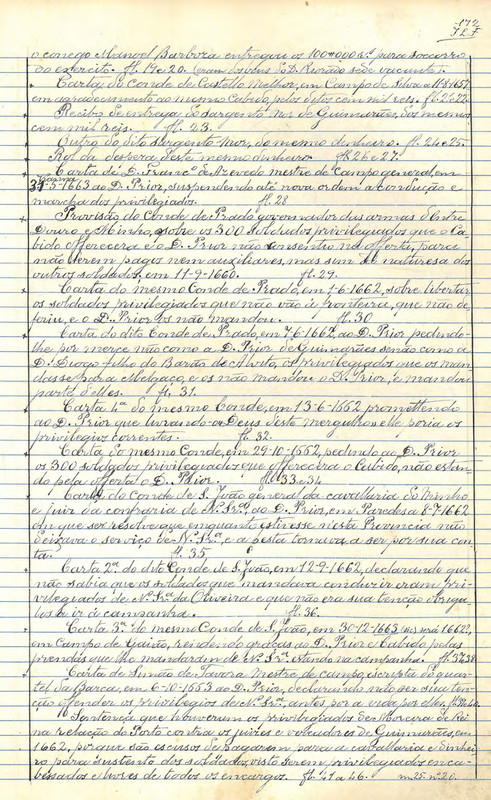 172
o conego Manoel Barboza entregou os 100#000 rs. para soccorro
do exercito. fl. 19 e 20. (eram do povo do D. Priorado sede vacante).
Carta do Conde de Castello Melhor, em Campo de Silva a 11-8-1657
em agradecimento ao mesmo Cabido pelos ditos cem mil reis. fl. 21 e 22.
Recibo de entrega do sargento Mór de Guimarães, dos mesmos
cem mil reis. fl. 23.
Outro do dito sargento-mór, do mesmo dinheiro. fl. 24 e 25.
Rol da despeza deste mesmo dinheiro fl. 26 e 27.
Carta de D. Franco. de Azevedo mestre de Campo general, em
31-5-1663 ao D. Prior, suspendendo até nova ordem a conducção e
marcha dos privilegiados. fl. 28
Provisão do Conde de Prado governador das armas d'Entre
Douro e Minho, sobre os 300 soldados privilegiados que o Ca-
bido offerecera e o D. Prior não consentiu na offerta, para
não serem pagos nem auxiliares, mas sim de natureza dos
outros soldados, em 11-9-1660. fl. 29.
Carta do mesmo Conde de Prado, em 1-6-1662, sobre libertar
os soldados privilegiados que não vão á fronteira, que não de-
feriu, e o D. Prior os não mandou. fl. 30
Carta do dito Conde de Prado, em 7-6-1662, ao D. Prior pedindo-
lhe por mercê não como a D. Prior de Guimarães senão como a
D. Diogo filho do Barão de Alvito, os privilegiados que os man-
dasse para Melgaço, e os não mandou o D. Prior, e mandou
parte d'elles. fl. 31.
Carta 4ª do mesmo Conde, em 13-6-1662 promettendo
ao D. Prior que livrando-o Deus deste mergulho elle poria os
privilegios correntes. fl. 32.
Carta do mesmo Conde, em 29-10-1662, pedindo ao D. Prior
os 300 soldados privilegiados que offerecera o Cabido, não estan-
do pela offerta o D. Prior. fl. 33 e 34
Carta do Conde de S. João general da cavallaria do Minho
e juiz da confraria de N. Srª. ao D. Prior, em Paredes a 8-7-1662
em que se resolve que emquanto estivesse n'esta Provincia não
deixava o serviço de N. Srª. e a festa tomava a ser por sua con-
ta. fl. 35
Carta 2ª. do dito Conde de S. João, em 12-9-1662, declarando que
não sabia que os soldados que mandava conduzir eram pri-
vilegiados de N. Sra da Oliveira e que não era sua tenção obriga-
los a ir á campanha. fl. 36.
Carta 3ª. do mesmo Conde de S. João, em 30-12-1663 (sic) será 1662?,
em Campo de Guião, rendendo graças ao D. Prior e Cabido pelas
prendas que lhe mandaram de N. Srª. estando na campanha. fl. 37, 38.
Carta de Simão de Tavora mestre de campo, escripta do quar-
tel da Barca, em 6-10-1653 ao D. Prior, declarando não ser sua ten-
ção offender os privilegios de N. Srª., antes por a vida por elles. fl. 39, 40.
Sentença que houveram os privilegiados de Moreira de Rei
na relação do Porto contra os juizes e vereadores de Guimarães, em
1662, porque são escusos de pagarem para a cavallaria e dinhei-
ro para sustento dos soldados, visto serem privilegiados enca-
beçados e livres de todos os encargos. fl. 41 a 46. m. 25. nº. 20.